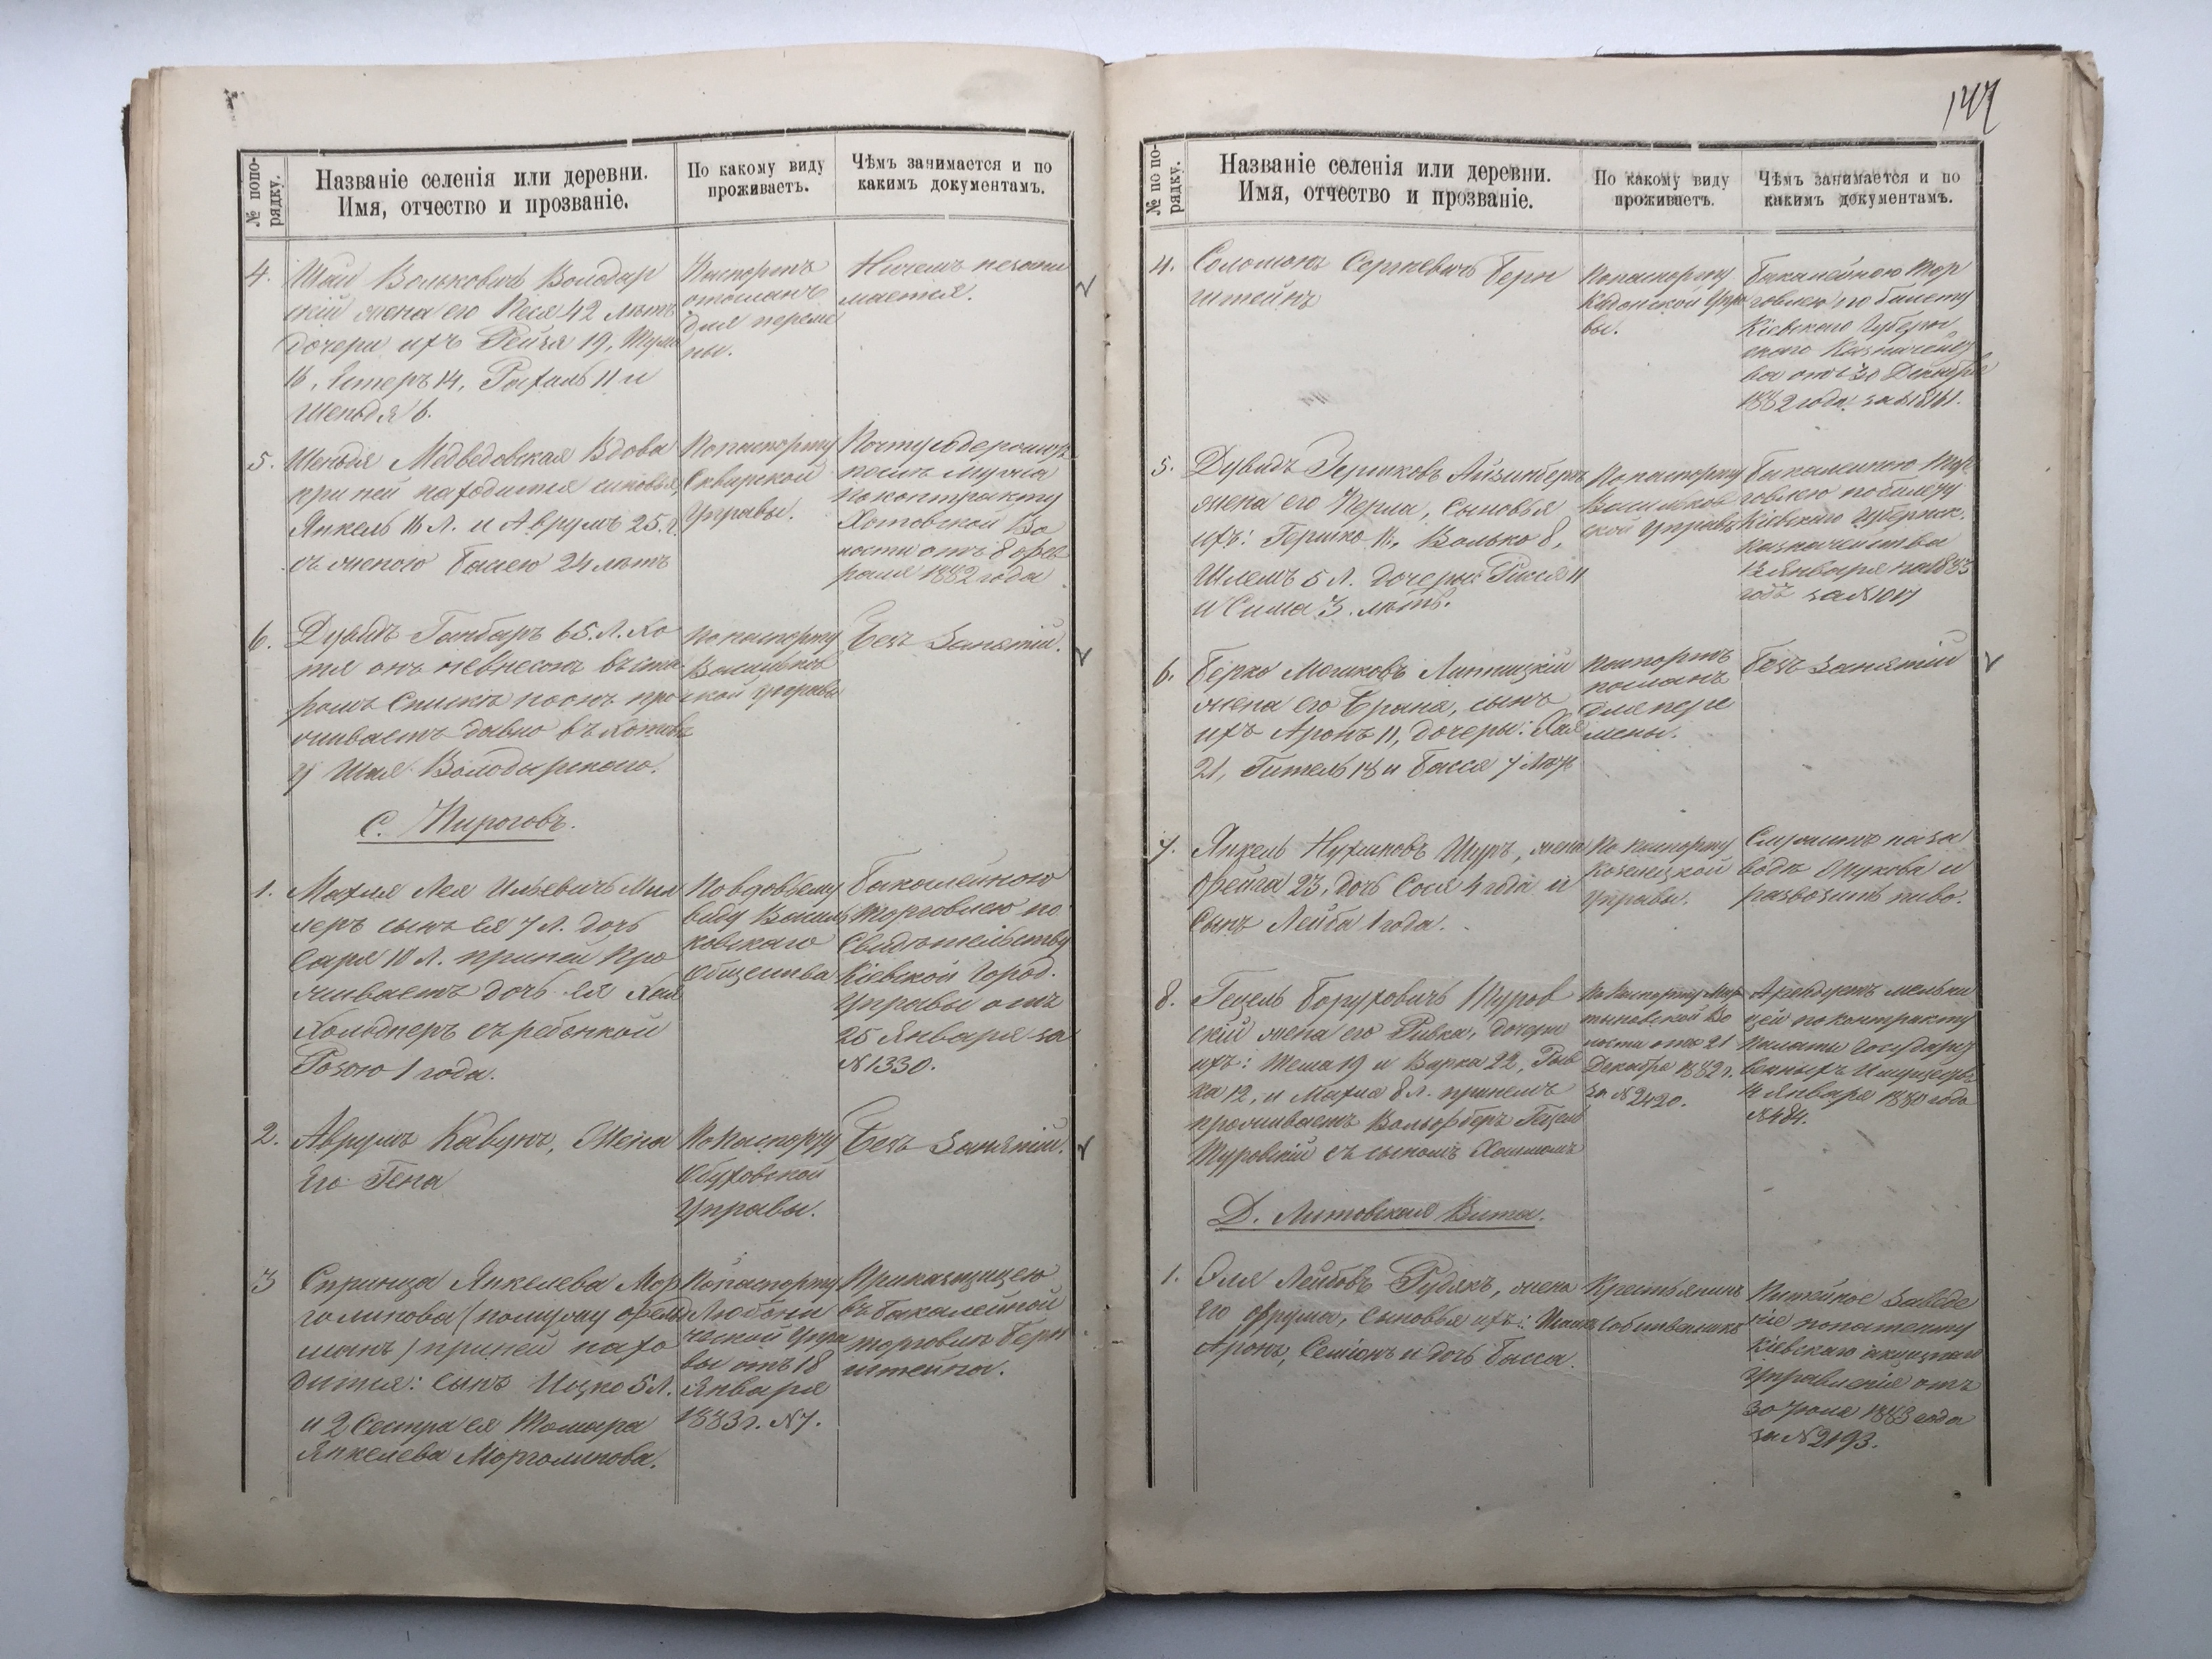 № попо-
рядку.
Названіе селенія или деревни.
Имя, отчество и прозваніе.
По какому виду
проживаетъ.
Чѣмъ занимается и по
какимъ документамъ.
4.
Шая Вольковичъ Володар
скій жена его Песя 42 лѣтъ
дочери ихъ Рейзя 19,
16, Эстеръ 14, Рахиль 11 и
Шендля 6.
Паспортъ
отосланъ
для переме
ны.
Ничемъ незани
мается.
5.
Шендля Медведовская Вдова
при ней находится сыновья,
Янкель 16 Л. и Аврумъ 25. г.
съ женою Басею 24 лѣтъ
Попаспорту
Сквирской
Управы.
по контракту
Хотовской Во
лости отъ 8 Фев
раля 1882 года
6.
Дувидъ Гонбаръ 65. Л. Хо
тя онъ невнесенъ въ
ромъ Спискѣ но онъ про
живаетъ давно въ Хотовѣ
у Шая Володарского.
По паспорту
Васильков
ской управы
Безъ Занятій.
С. Пироговъ.
1.
Махля Лея Ильевичъ Мил
леръ сынъ ея 7 Л. дочь
Сара 10 Л. приней Про
живаетъ дочь ея Хая
Хольднеръ съ ребенкой
Розою 1 года.
Повдовьему
виду Василь
ковскаго
Общества
Бакалейною
торговлею по
Свидѣтельству
Кіевской Город.
Управы отъ
25 Января за
№ 1330.
2.
Аврумъ Кавунъ, Жена
Его Гена
Попаспорту
Обуховской
Управы.
Безъ Занятій.
3
Спринца Янкелева Мор
голинова (помужу Фельд
манъ) приней нахо
дится: сынъ Ицко 5 Л.
и 2 Сестра ея Томара
Янкелева Морголинова.
Попаспорту
Любони
ческой Упра
вы отъ 18
Января
1883 г. № 7.
Прикащицею
въ Бакалейной
торговлѣ Берн
штейна.
147
№ по по-
рядку.
Названіе селенія или деревни.
Имя, отчество и прозваніе.
По какому виду
проживаетъ.
Чѣмъ занимается и по
какимъ документамъ.
4.
Соломонъ Сергѣевичъ Берн
штейнъ
Попаспорту
Кадомской Упра
вы.
Бакалейною тор
говлею по билету
Кіевского Губерн
ского Казначейст
ва отъ 30 Декабря
1882 года за № 18161.
5.
Дувидъ Гершковъ Айзинбергъ
жена его Перла, Сыновья
ихъ: Гершко 11, Волько 8,
Шлемъ 5 Л. дочеры: Рися 11
и Сима 3. лѣтъ.
По паспорту
Васильков
ской Управы
Бакалейною тор
говлею побилету
Кіевского Губернск.
Казначейства
12 Января на 1883
годъ за №
6.
Берко Мошковъ Липницкій
жена его Брана, сынъ
ихъ Аронъ 11, дочеры: Хая
21, Гитель 18 и Басся 7 лѣтъ
Паспортъ
посланъ
для пере
мены.
Безъ Занятій
7.
Янкель Нухимовъ Шуръ, жена
Фейга 23, дочь Сося 4 года и
Сынъ Лейба 1 года.
По паспорту
Козелецкой
Управы.
Служитъ на за
водѣ Жукова и
развозитъ пиво.
8.
Гецель Боруховичъ Туров
скій жена его Ривка, дочери
ихъ: Тема 19 и Варка 22,
ка 12, и Махла 8 л. принемъ
проживаетъ Вольфберъ Гецель
Туровскій съ сыномъ
По Паспорту Мар
тыновской Во
лости отъ 21
Декабря 1882 г.
за № 2420.
Арендуетъ мельни
цей по контракту
Палаты Государст
венныхъ Имуществъ
14 Января 1880 года
№ 484.
Д. Литовская Вита.
1.
Эля Лейбовъ Рудякъ, жена
Его Фрума, Сыновья ихъ:
Аронъ, Семіонъ и дочь Басса.
Крестьянинъ
Собственникъ
Питейное Заведе
ніе попатенту
Кіевскаго акцизнаго
Управленія отъ
30 Іюня 1883 года
за № 2193.